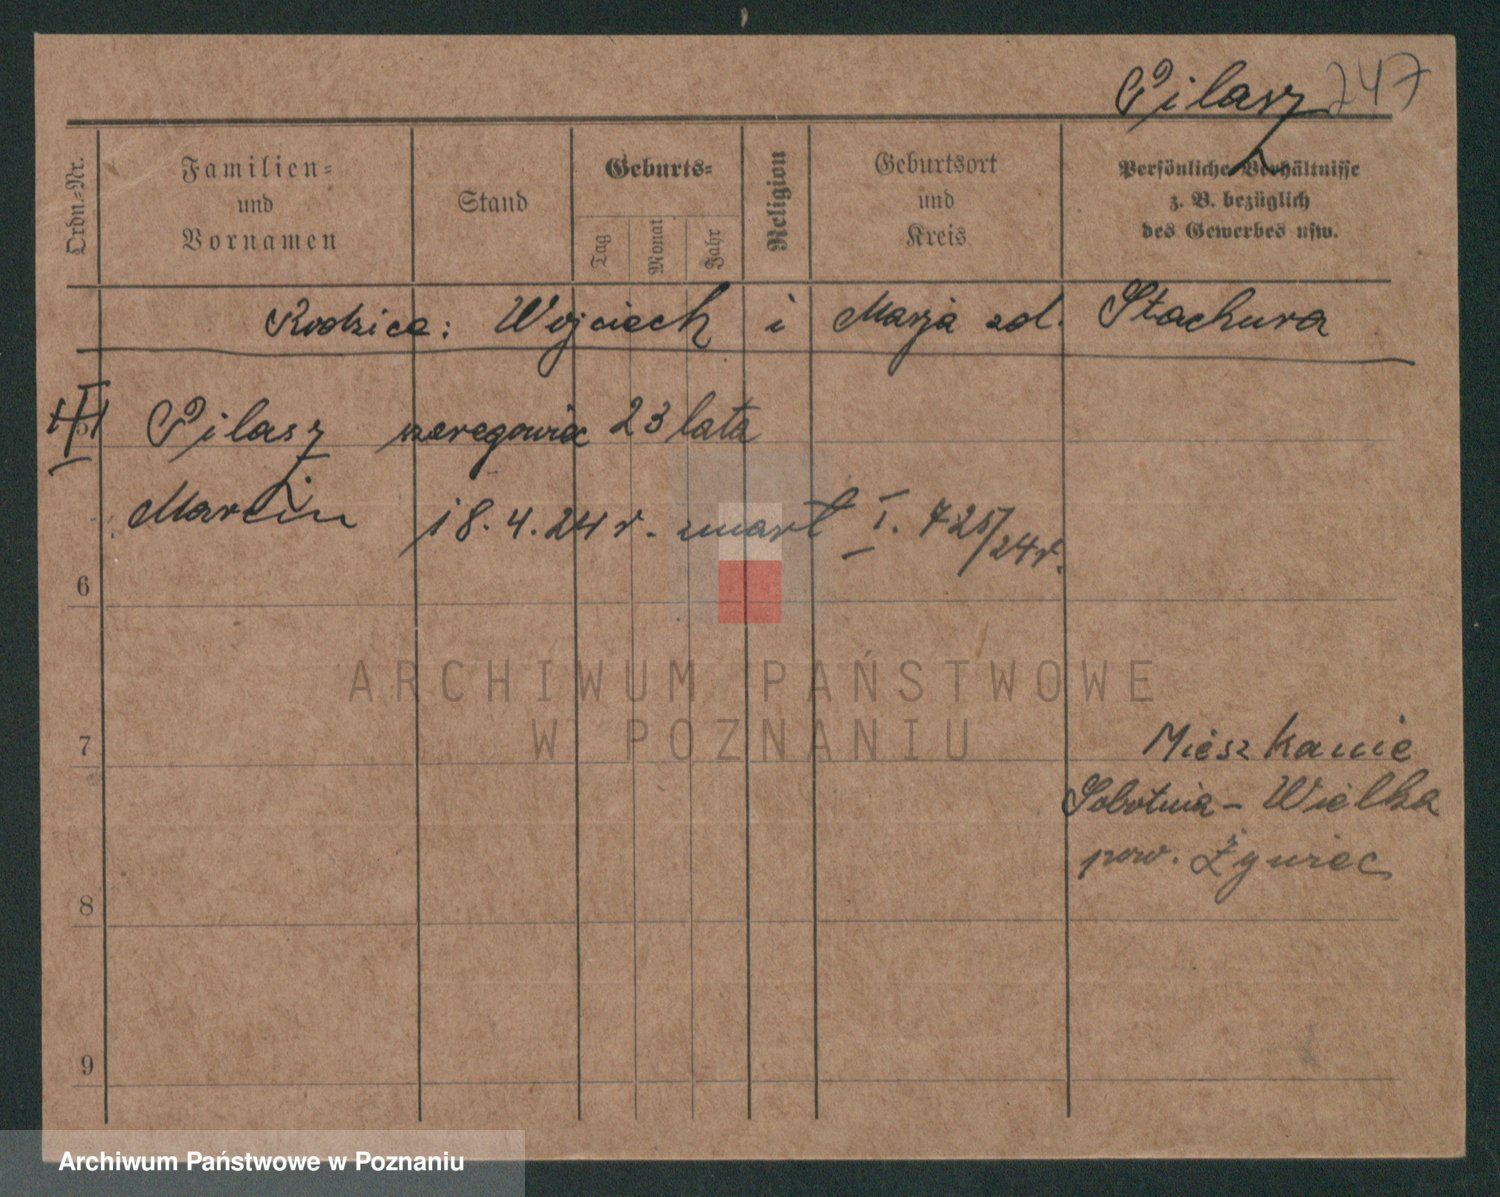 Pilasz 247
Ordn.=Nr.
Familien=
und
Vornamen
Stand
Geburts=
Tag
Monat
Jahr
Religion
Geburtsort
und
Kreis
Persönliche Verhältnisse
z. B. bezüglich
des Gewerbes usw.
Rodzice: Wojciech i Marja zd. Stachura
Pilasz szeregowiec 23 lata
Marcin 18.4.24 r. zmarł I. 725/24 r.
6
ARCHIWUM PAŃSTWOWE
W POZNANIU
7
Mieszkanie
Sobotnia - Wielka
pow. Żywiec
8
9
Archiwum Państwowe w Poznaniu